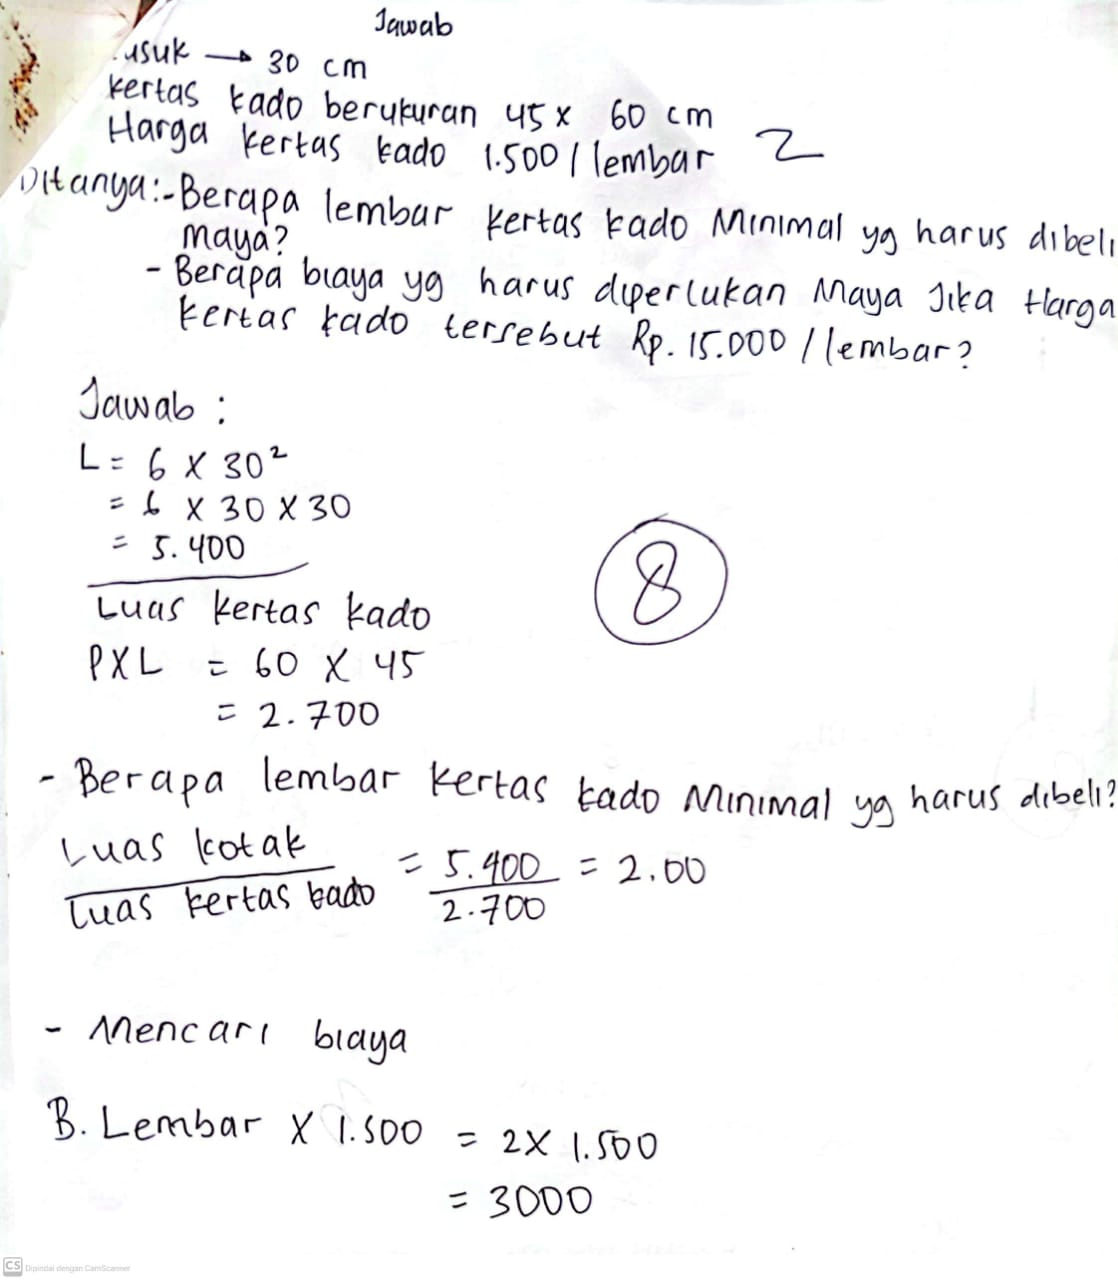 Jawab
usuk → 30 cm
kertas kado berukuran 45 x 60 cm
Harga kertas kado 1.500 / lembar
2
Ditanya:-Berapa lembar kertas kado Minimal yg harus dibeli
Maya?
- Berapa biaya yg harus diperlukan Maya Jika Harga
kertas kado tersebut Rp. 15.000 / lembar?
Jawab :
L = 6 X 30²
= 6 X 30 X 30
= 5.400
Luas kertas kado
PXL = 60 X 45
= 2.700
8
- Berapa lembar kertas kado Minimal yg harus dibeli?
Luas kotak
Luas kertas kado
= 5.400 = 2.00
2.700
- Mencari biaya
B. Lembar X 1.500 = 2X 1.500
= 3000
CS Dipindai dengan CamScanner